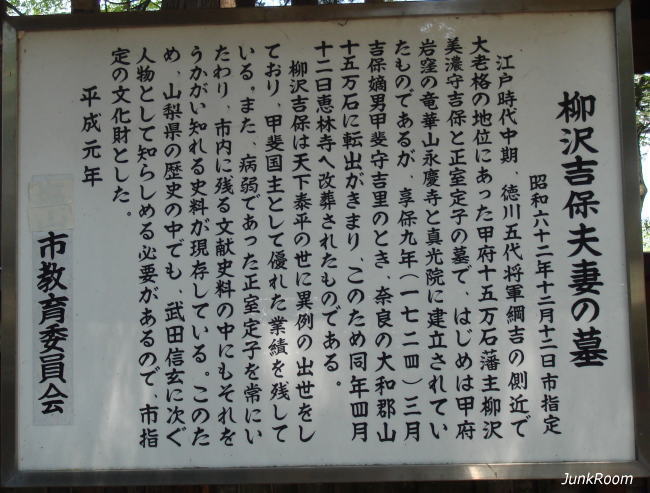 柳沢吉保夫妻の墓
昭和六十二年十二月十二日市指定
江戸時代中期、徳川五代将軍綱吉の側近で
大老格の地位にあった甲府十五万石藩主柳沢
美濃守吉保と正室定子の墓で、はじめは甲府
岩窪の竜華山永慶寺と真光院に建立されてい
たものであるが、享保九年(一七二四)三月
吉保嫡男甲斐守吉里のとき、奈良の大和郡山
十五万石に転出がきまり、このため同年四月
十二日恵林寺へ改葬されたものである。
柳沢吉保は天下泰平の世に異例の出世をし
ており、甲斐国主として優れた業績を残して
いる。また、病弱であった正室定子を常にい
たわり、市内に残る文献史料の中にもそれを
うかがい知れる史料が現存している。このた
め、山梨県の歴史の中でも、武田信玄に次ぐ
人物として知らしめる必要があるので、市指
定の文化財とした。
平成元年
市教育委員会
JunkRoom